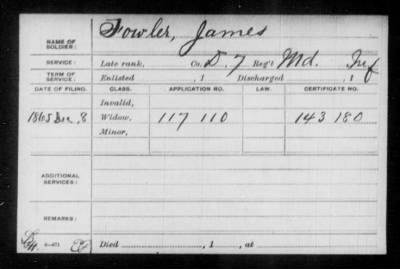 NAME OF SOLDIER: Fowler, James
SERVICE: Late rank, Co. D. 7 Reg't Md. Inf
TERM OF SERVICE: Enlisted , 1 Discharged , 1
DATE OF FILING. CLASS. APPLICATION NO. LAW. CERTIFICATE NO.
Invalid,
1865 Dec. 8 Widow, 117 110 143 180
Minor,
ADDITIONAL SERVICES:
REMARKS:
Died , 1 , at